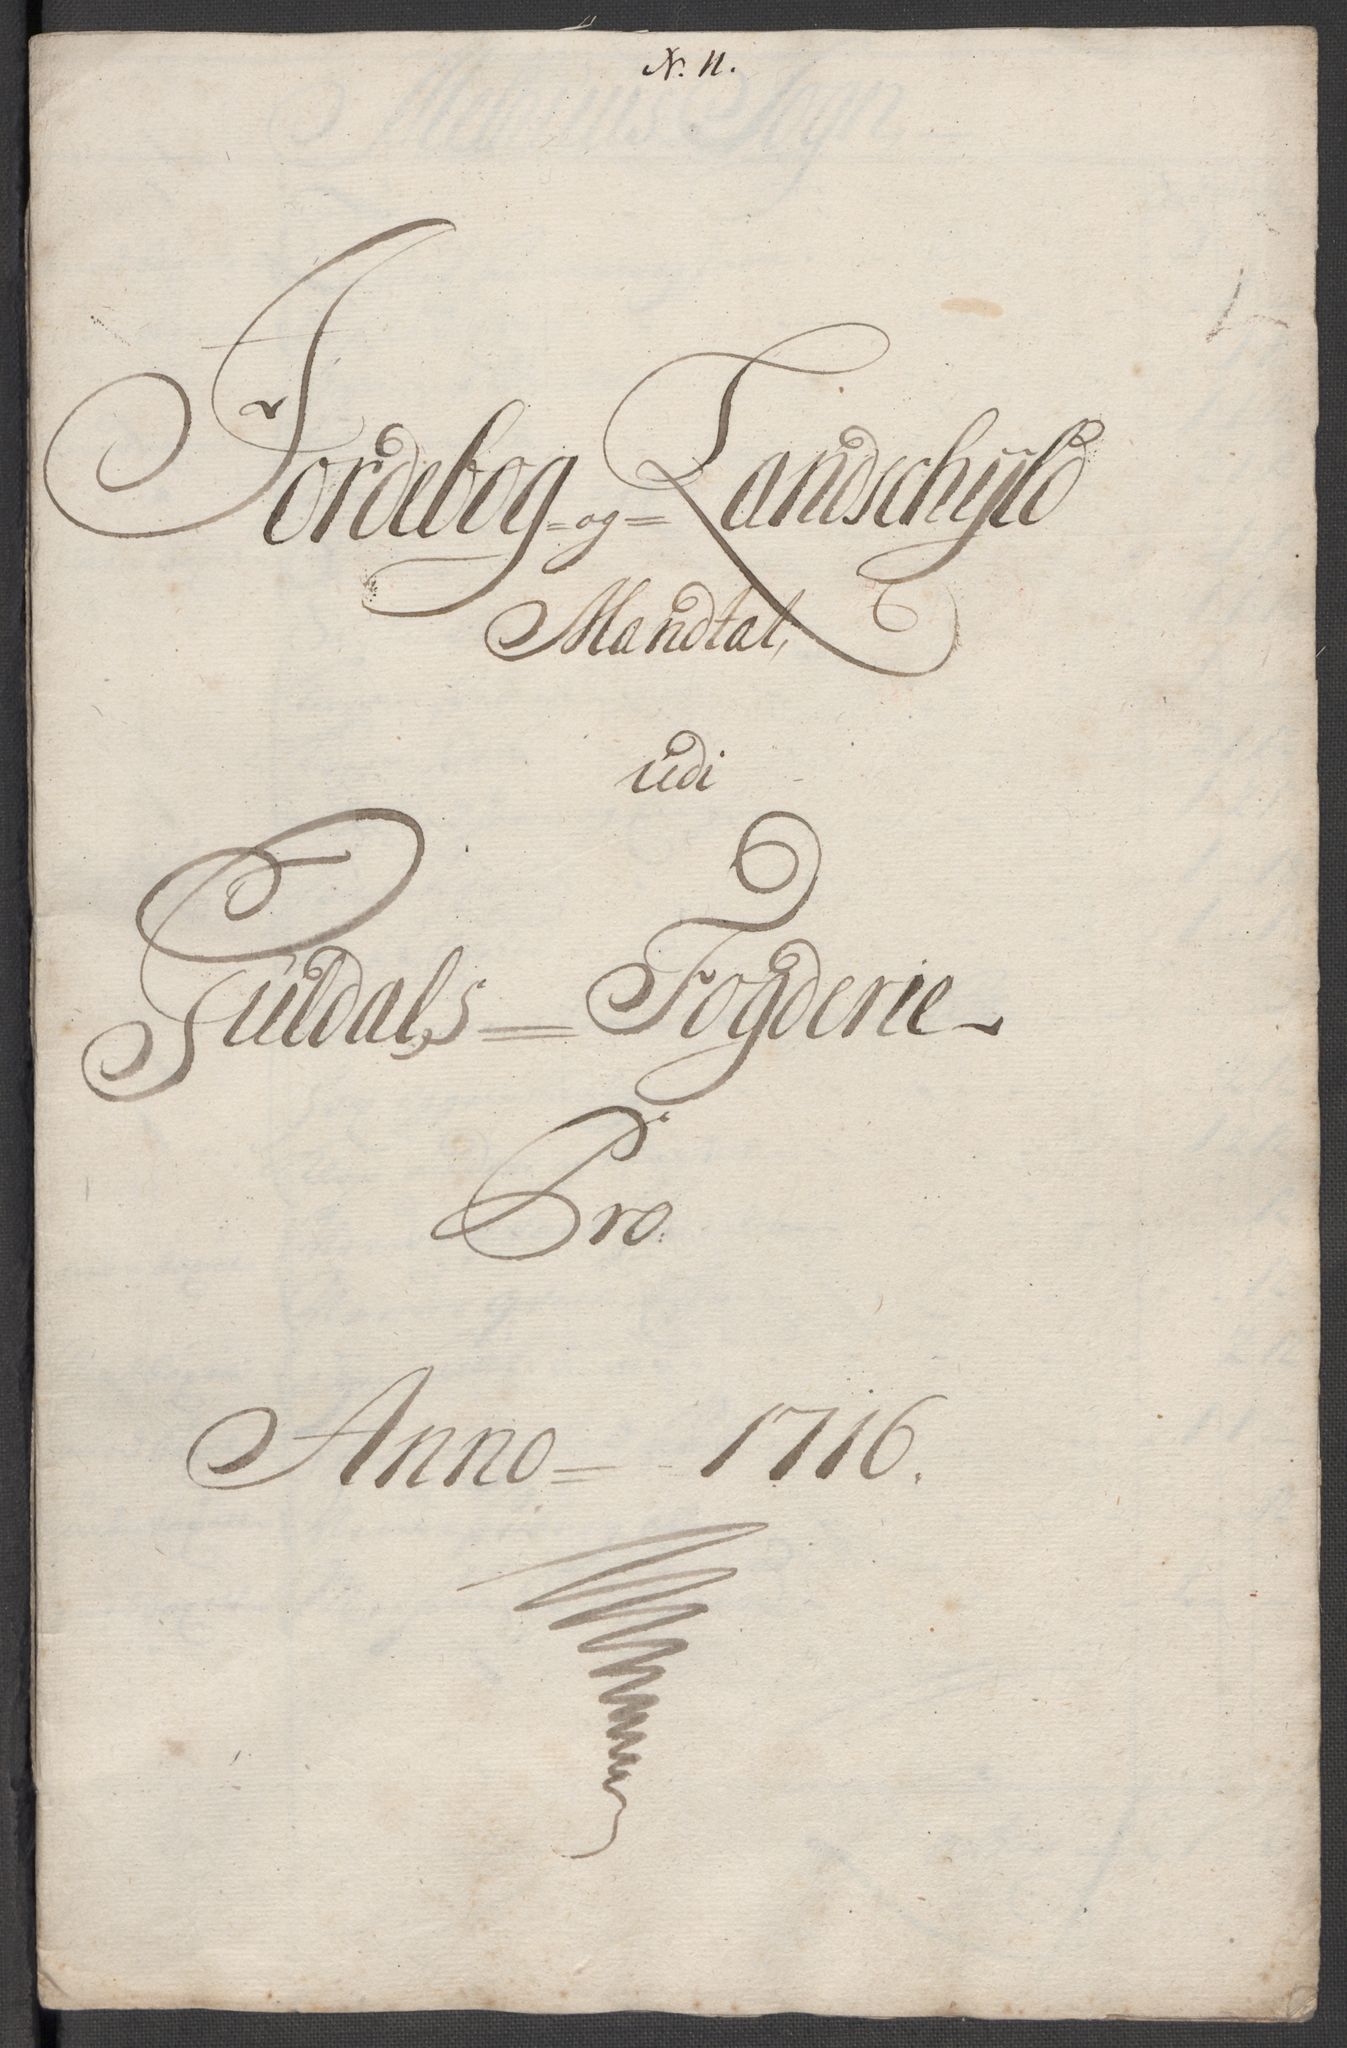 N. 11.
Jordebog og Landschyld
Mandtal,
udi
Guldals Fogderie
Pro.
Anno 1716.